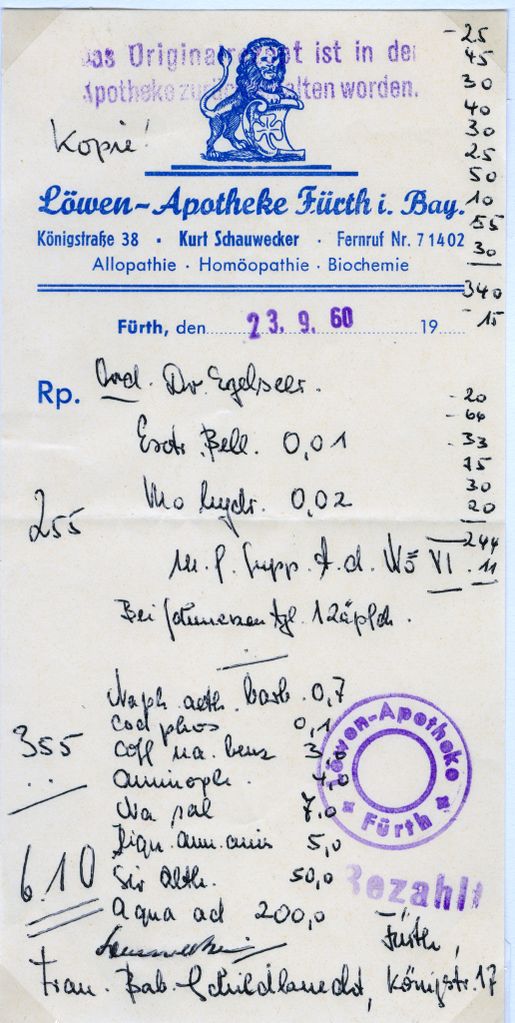 Das Original ist in der
Apotheke zurückbehalten worden.
Kopie!
Löwen-Apotheke Fürth i. Bay.
Königstraße 38 · Kurt Schauwecker · Fernruf Nr. 71402
Allopathie · Homöopathie · Biochemie
- 25
45
30
40
30
25
50
10
55
30
340
- 15
Fürth, den 23. 9. 60 19
Rp. Ord. Dr.
Extr. Bell. 0,01
0,02
M. f. Supp. t. d. No VI
Bei Schmerzen tgl. 1 Zäpfch.
- 20
- 64
- 33
75
30
20
244
. 11
255
Naph. aeth. barb. 0,7
Cod phos 0,1
Coff na. benz 3,0
Aminoph. 4,0
Na sal 7,0
Liqu. amm. anis 5,0
Sir Alth. 50,0
Aqua ad 200,0
355
6.10
Löwen-Apotheke
Fürth
Bezahlt
Fürth,
Frau. Bab. Schildknecht, Königstr. 17